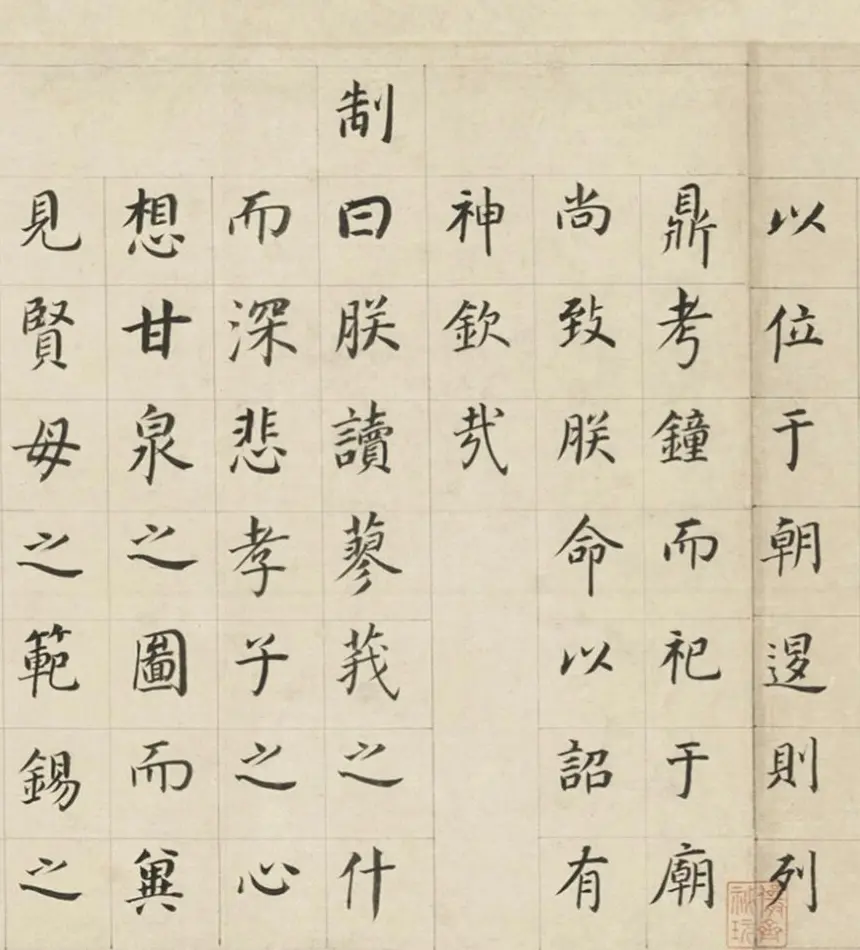 以位于朝退則列
鼎考鐘而祀于廟
尚致朕命以詔有
神欽哉
制曰朕讀蓼莪之什
而深悲孝子之心
想甘泉之圖而冀
見賢母之範錫之